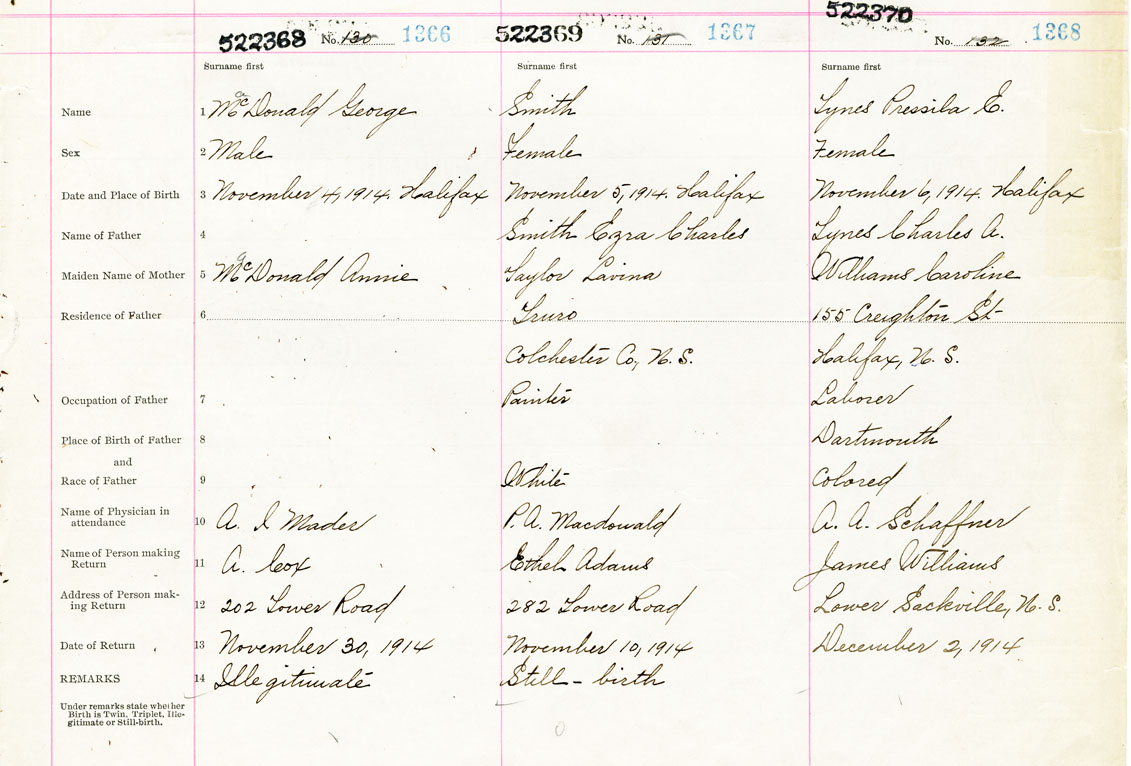 522368 No. 130 1366 522369 No. 131 1367 522370 No. 132 1368
Surname first Surname first Surname first
Name 1 McDonald George Smith Lynes Pressila E.
a
Sex 2 Male Female Female
Date and Place of Birth 3 November 4, 1914. Halifax November 5, 1914. Halifax November 6, 1914. Halifax
Name of Father 4 Smith Ezra Charles Lynes Charles A.
Maiden Name of Mother 5 McDonald Annie Taylor Lavina Williams Caroline
a
Residence of Father 6 Truro 155 Creighton St
Colchester Co, N. S. Halifax, N. S.
Occupation of Father 7 Painter Laborer
Place of Birth of Father 8 Dartmouth
and
Race of Father 9 White Colored
Name of Physician in
attendance 10 A. I Mader P. A. Macdonald A. A. Schaffner
Name of Person making
Return 11 A. Cox Ethel Adams James Williams
Address of Person mak-
ing Return 12 202 Tower Road 282 Tower Road Lower Sackville, N. S.
Date of Return 13 November 30, 1914 November 10, 1914 December 2, 1914
REMARKS 14 Illegitimate Still - birth
Under remarks state whether
Birth is Twin, Triplet, Ille-
gitimate or Still-birth.